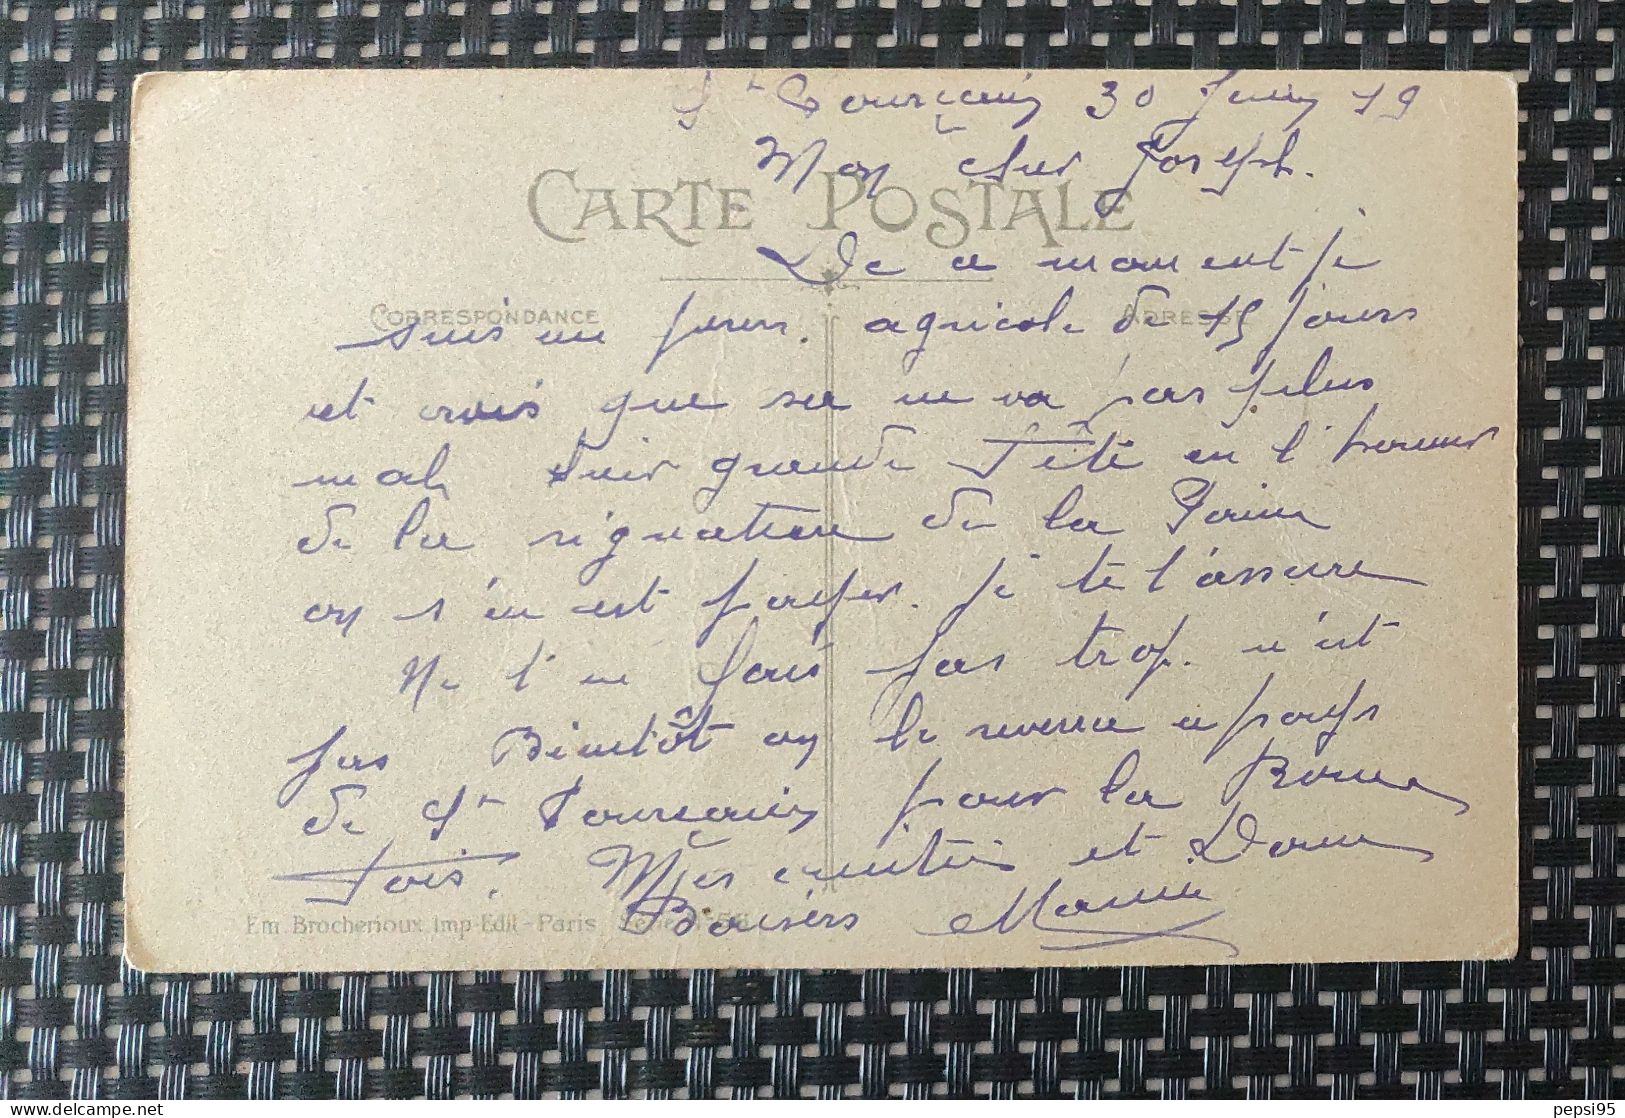 St Pourçain 30 Juin 19
Mon cher Joseph.
CARTE POSTALE
De ce moment je
CORRESPONDANCE
ADRESSE
suis en perm. agricole de 15 jours
et crois que sa ne va pas plus
mal hier grande Fête en l'honneur
de la signature de la Paix
on s'en est payer. je te l'assure
Ne t'en fais pas trop. n'est
pas Bientôt on le reverra ce pays
de St Pourçain pour la Bonne
Fois. Mes amitiés et Doux
Baisers
Em. Brocherioux Imp-Edit-Paris
delcampe.net
pepsi95